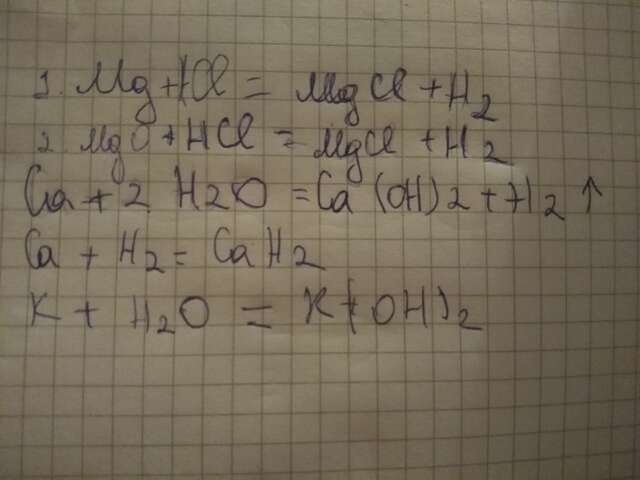 1. Mg + HCl = MgCl + H2
2. MgO + HCl = MgCl + H2
Ca + 2 H2O = Ca (OH)2 + H2 ↑
Ca + H2 = CaH2
K + H2O = K(OH)2